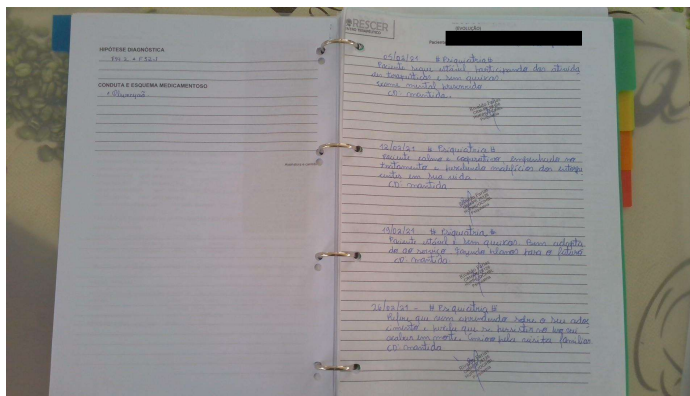 HIPÓTESE DIAGNÓSTICA
CONDUTA E ESQUEMA MEDICAMENTOSO
CRESCER
EVOLUÇÃO
Paciente
05/02/21 # Psiquiatria #
Paciente segue estável, participando das ativida
des terapêuticas e sem queixas.
Exame mental preservado
CD: mantida.
12/02/21 # Psiquiatria #
Paciente calmo e cooperativo, empenhado no
tratamento e percebendo malefícios dos entorpe
centes em sua vida
CD: mantida
19/02/21 # Psiquiatria #
Paciente estável e sem queixas. Bem adapta
do ao serviço. Fazendo planos para o futuro.
CD: mantida
26/02/21 - # Psiquiatria #
Refere que vem aprendendo sobre o seu adoe
cimento e que se persistir no uso
acabar em morte. Ansioso pela visita familiar
CD: mantida